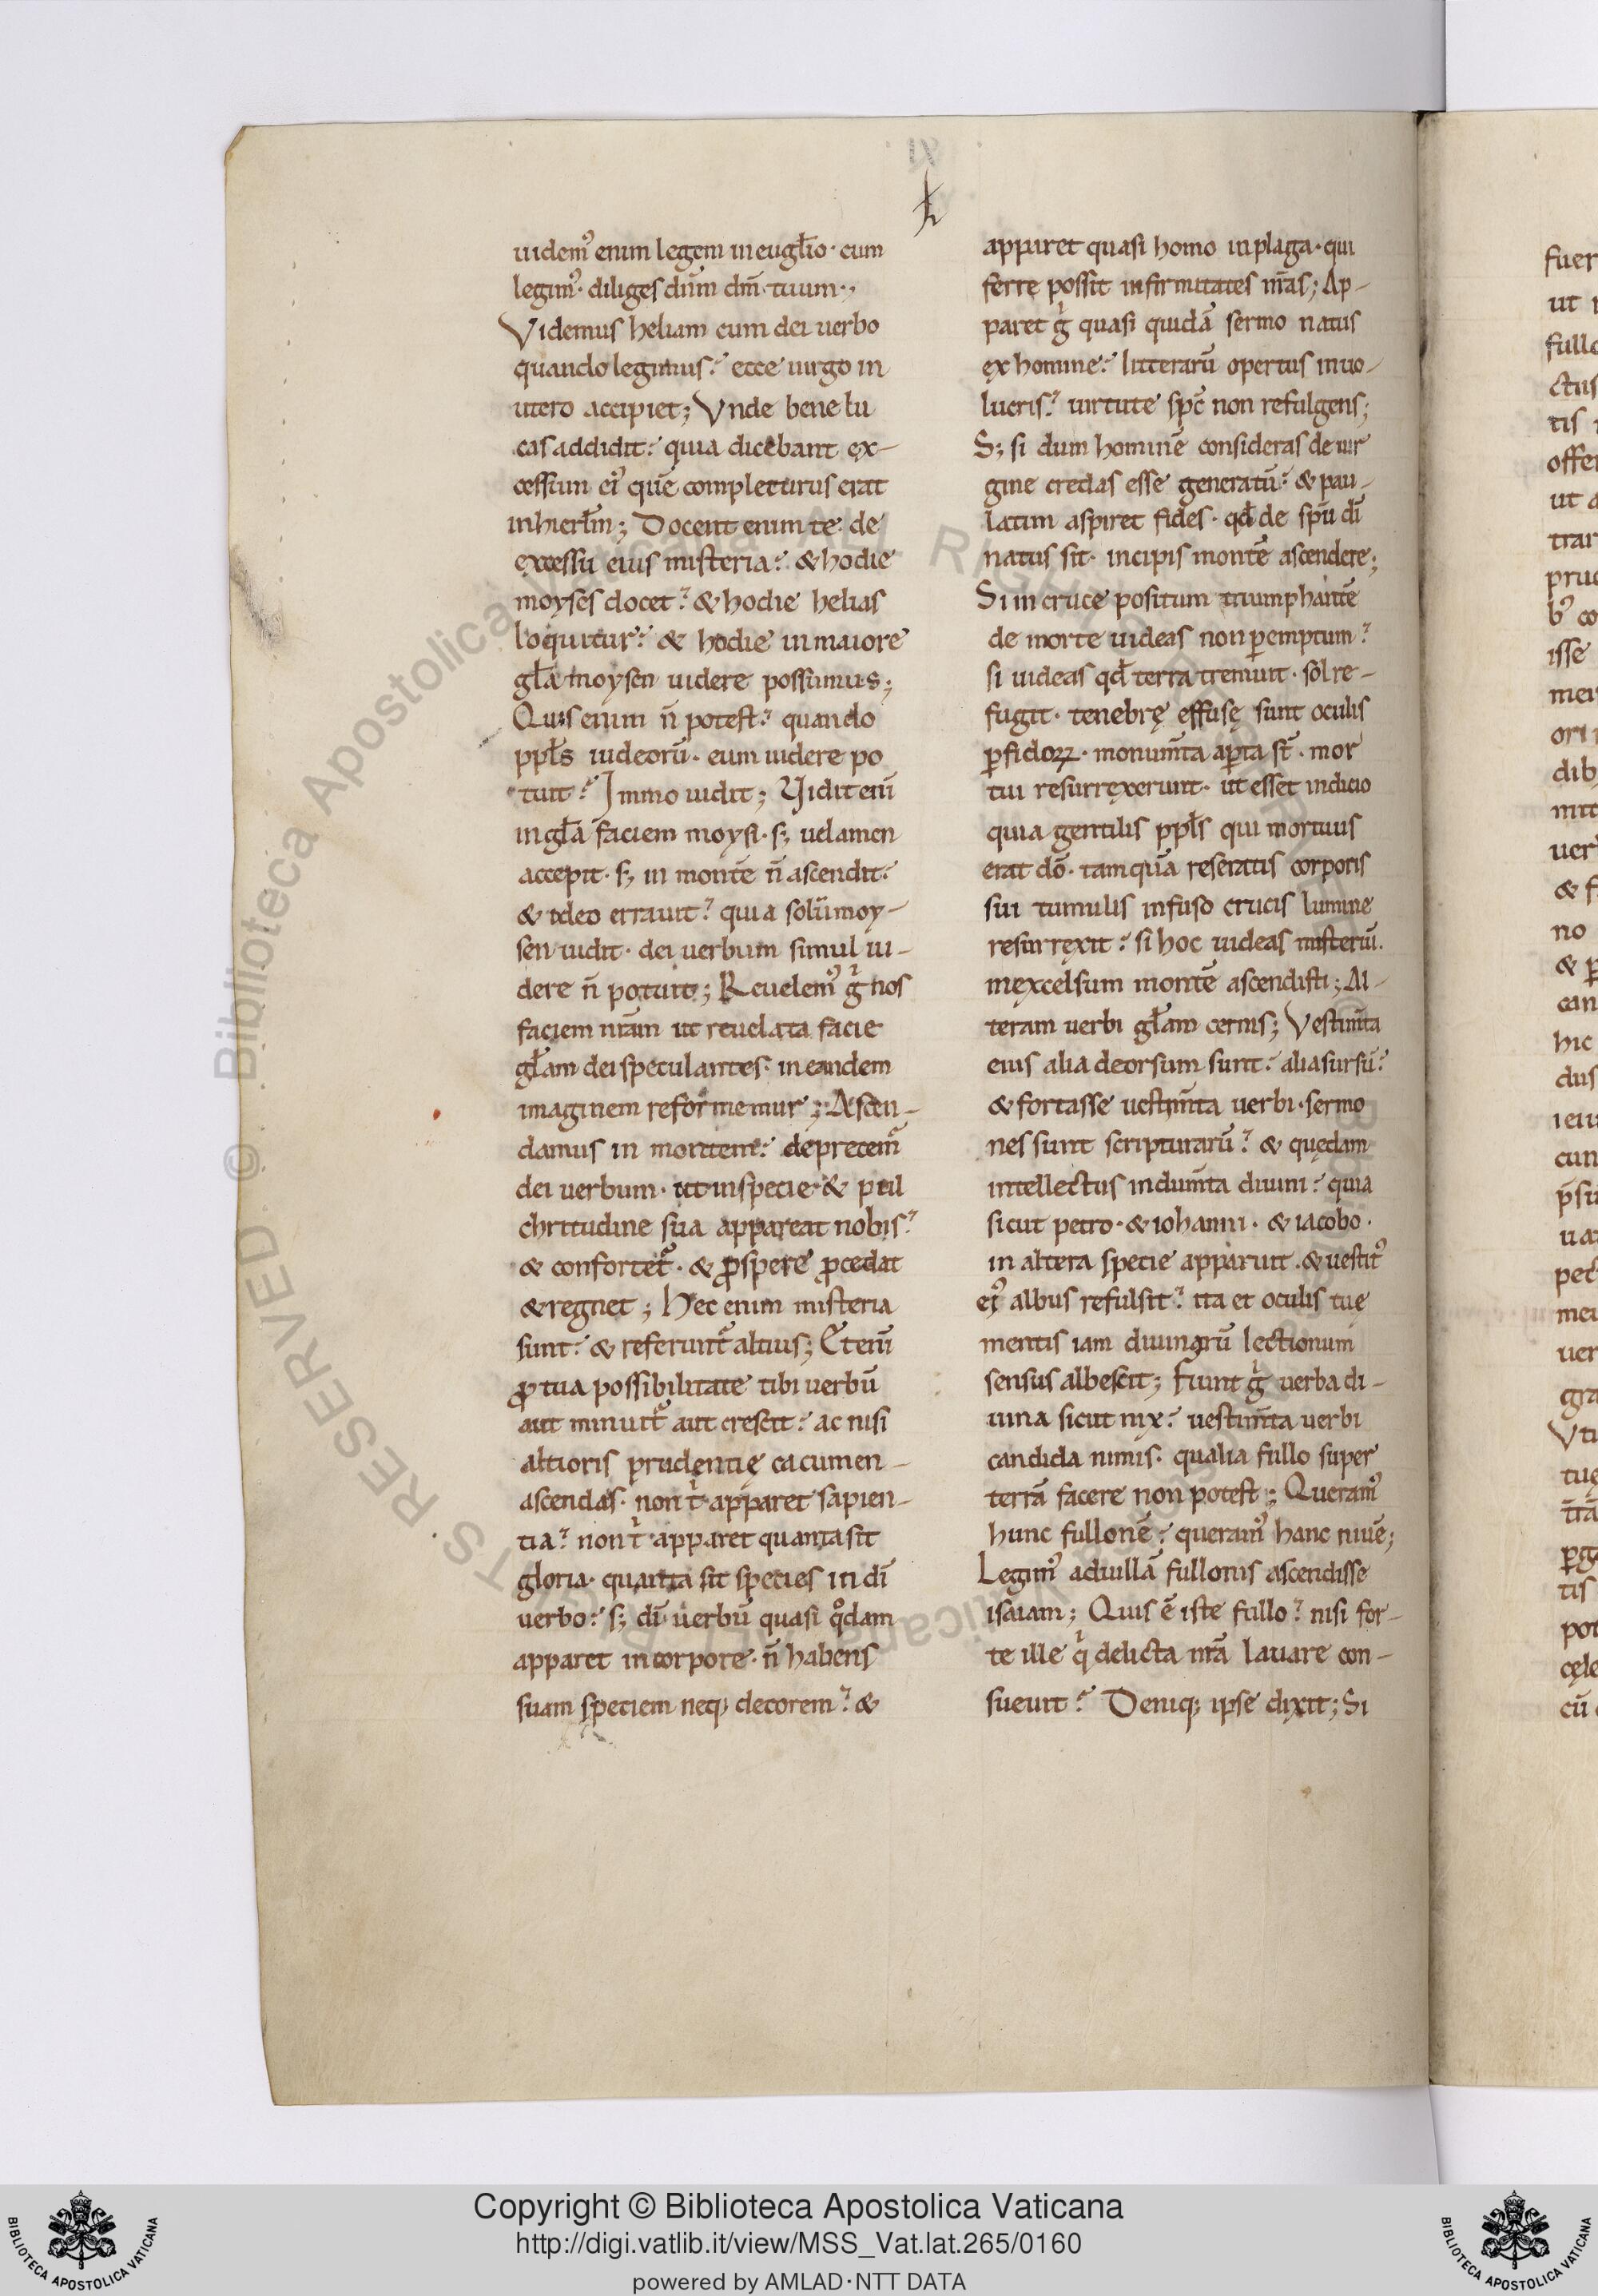 uidem᾽ enim legem in eugl̄io · cum
legim᾽ · diliges dūm dm̄ · tuum ·,
Videmus heliam cum dei uerbo
quando legimus? ecce uirgo in
utero accipiet; Vnde bene lu
cas addidit? quia dicebant ex-
cessum ei᾽ quē completurus erat
in hierl̄m; Docent enim te de
excessu eius misteria? & hodie
moyses docet? & hodie helias
loquitur? & hodie in maiore
gl̄a moysen uidere possumus;
Quis enim n̄ potest? quando
ppl̄s iudeorū · eum uidere po
tuit? Immo uidit; Vidit enī
in gl̄a faciem moysi · s; uelamen
accepit · s; in montē n̄ ascendit?
& ideo errauit? quia solū moy-
sen uidit · dei uerbum simul ui-
dere n̄ potuit; Reuelem᾽ gͥ nos
faciem nr̄am ut reuelata facie
gl̄am dei speculantes · in eandem
imaginem reformemur; Ascen-
damus in montem? deprecem᷑
dei uerbum · ut in specie · & pul
chritudine sua appareat nobis?
& confortet᷑ · & ꝓspere ꝓcedat
& regnet; Hec enim misteria
sunt? & referunt᷑ altius; Etenī
ꝓ tua possibilitate tibi uerbū
aut minuit᷑ aut crescit? ac nisi
altioris prudentię cacumen-
ascendas · non tͥ apparet sapien-
tia? non tͥ apparet quanta sit
gloria · quanta sit species in dī
uerbo? s; dī uerbū quasi qͦdam
apparet in corpore · n̄ habens
suam speciem neq; decorem? &
apparet quasi homo in plaga · qui
ferre possit infirmitates nr̄as; Ap-
paret gͥ quasi quidā sermo natus
ex homine? litterarū opertus inuo-
lucris? uirtute spc̄ non refulgens;
S; si dum hominē consideras de uir
gine credas esse generatū? & pau-
latim aspiret fides · qd̄ de spū dī
natus sit · incipis montē ascendere;
Si in cruce positum triumphantē
de morte uideas non ꝑemptum?
si uideas qd̄ terra tremuit · sol re-
fugit · tenebrę effusę sunt oculis
ꝑfidoꝝ · monum̄ta aꝑta st̄ · mor
tui resurrexerunt · ut esset indicio
quia gentilis ppl̄s qui mortuus
erat dō · tamquā reseratis corporis
sui tumulis infuso crucis lumine
resurrexit? si hoc uideas misteriū.
in excelsum montē ascendisti; Al-
teram uerbi gl̄am cernis; Vestim̄ta
eius alia deorsum sunt? alia sursū?
& fortasse uestim̄ta uerbi · sermo
nes sunt scripturarū? & quędam
intellectus indum̄ta diuini? quia
sicut petro · & iohanni · & iacobo ·
in altera specie apparuit · & uestit᾽
ei᾽ albus refulsit? ita et oculis tuę
mentis iam diuinarū lectionum
sensus albescit; Fiunt gͥ uerba di-
uina sicut nix? uestim̄ta uerbi
candida nimis · qualia fullo super
terrā facere non potest; Queram᾽
hunc fullonē? queram᾽ hanc niuē;
Legim᾽ ad uillā fullonis ascendisse
isaiam; Quis ē iste fullo? nisi for-
te ille qͥ delicta nr̄a lauare con-
sueuit? Deniq; ipse dixit; Si
fuer
ut
fullo
ctus
tis
offer
ut a
trar
pru
b᾽ co
isse
mer
ori
dib
mit
uer
& f
no
& ꝑ
can
hic
dus
ieiu
cun
ua
pet
mei
uer
gra
Vti
tuę
tr̄a
ꝑg
tis
pot
cęle
cū
© Biblioteca Apostolica Vaticana. ALL RIGHTS RESERVED
Copyright © Biblioteca Apostolica Vaticana
http://digi.vatlib.it/view/MSS_Vat.lat.265/0160
powered by AMLAD·NTT DATA
BIBLIOTECA APOSTOLICA VATICANA
BIBLIOTECA APOSTOLICA VATICANA